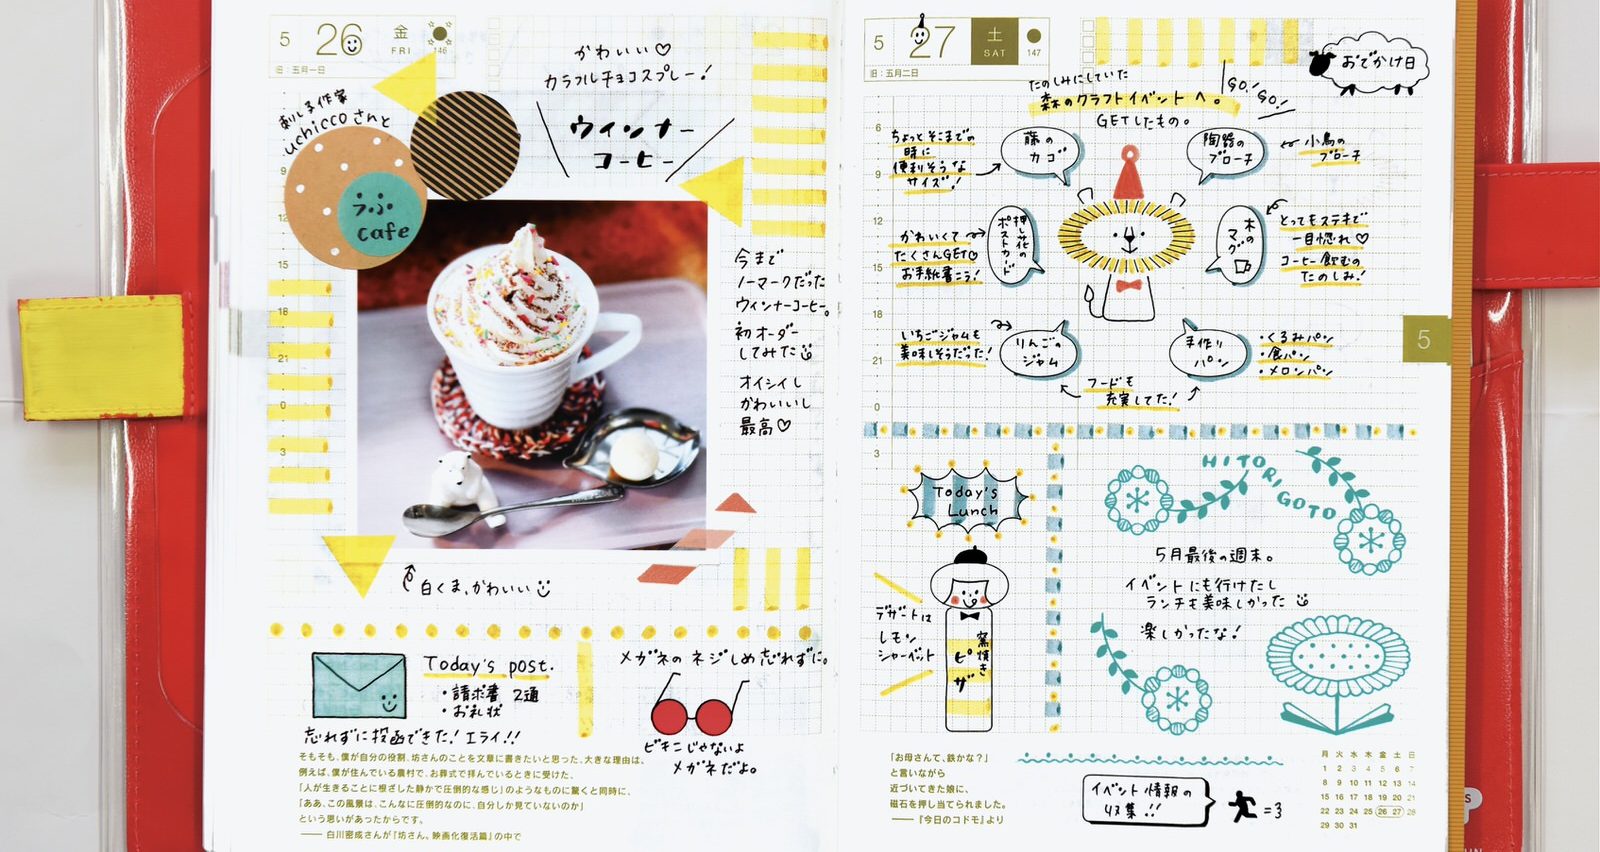 5 26 金 FRI 146
旧：五月一日
かわいい♡
カラフルチョコスプレー！
刺し子作家
uchiccoさんと
うふ
cafe
ウィンナー
コーヒー
今まで
ノーマークだった
ウィンナーコーヒー。
初オーダー
してみた
オイシイし
かわいいし
最高♡
白くま、かわいい
Today's post.
・請求書 2通
・お礼状
忘れずに投函できた！エライ!!
メガネのネジしめ忘れずに。
ビキニじゃないよ
メガネだよ。
9
12
15
18
21
0
3
そもそも、僕が自分の役割、坊さんのことを文章に書きたいと思った、大きな理由は、
例えば、僕が住んでいる農村で、お葬式で拝んでいるときに受けた、
「人が生きることに根ざした静かで圧倒的な感じ」のようなものに驚くと同時に、
「ああ、この風景は、こんなに圧倒的なのに、自分しか見ていないのか」
という思いがあったからです。
―― 白川密成さんが『坊さん、映画化復活篇』の中で
5 27 土 SAT 147
旧：五月二日
おでかけ日
たのしみにしていた
森のクラフトイベントへ。
GO! GO!
GETしたもの。
ちょっとそこまでの
時に
便利そうな
サイズ！
藤の
カゴ
陶器の
ブローチ
小鳥の
ブローチ
かわいくて
たくさんGET♡
お手紙書こう！
押し花の
ポストカード
木の
マグ
とってもステキで
一目惚れ♡
コーヒー飲むの
たのしみ！
いちごジャムも
美味しそうだった！
りんごの
ジャム
手作り
パン
・くるみパン
・食パン
・メロンパン
フードも
充実してた！
6
9
12
15
18
21
0
3
5
Today's
Lunch
デザートは
レモン
シャーベット
窯焼き
ピザ
HITORIGOTO
5月最後の週末。
イベントにも行けたし
ランチも美味しかった
楽しかったな！
「お母さんて、鉄かな？」
と言いながら
近づいてきた娘に、
磁石を押し当てられました。
――『今日のコドモ』より
イベント情報の
収集!!
=3
月 火 水 木 金 土 日
1 2 3 4 5 6 7
8 9 10 11 12 13 14
15 16 17 18 19 20 21
22 23 24 25 26 27 28
29 30 31